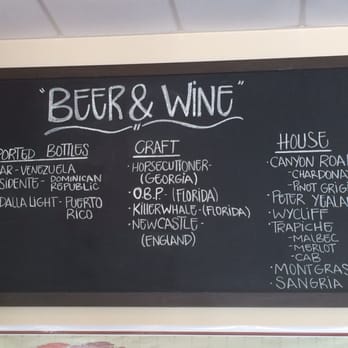 "BEER & WINE"
PORTED BOTTLES
AR - VENEZUELA
SIDENTE - DOMINICAN
REPUBLIC
DALLA LIGHT - PUERTO
RICO
CRAFT
· HOPSECUTIONER -
(GEORGIA)
· O.B.P. - (FLORIDA)
· KILLERWHALE - (FLORIDA)
· NEWCASTLE -
(ENGLAND)
HOUSE
· CANYON ROA
- CHARDONA
- PINOT GRIG
· PETER YEALAN
· WYCLIFF
· TRAPICHE
- MALBEC
- MERLOT
- CAB
· MONTGRAS
· SANGRIA